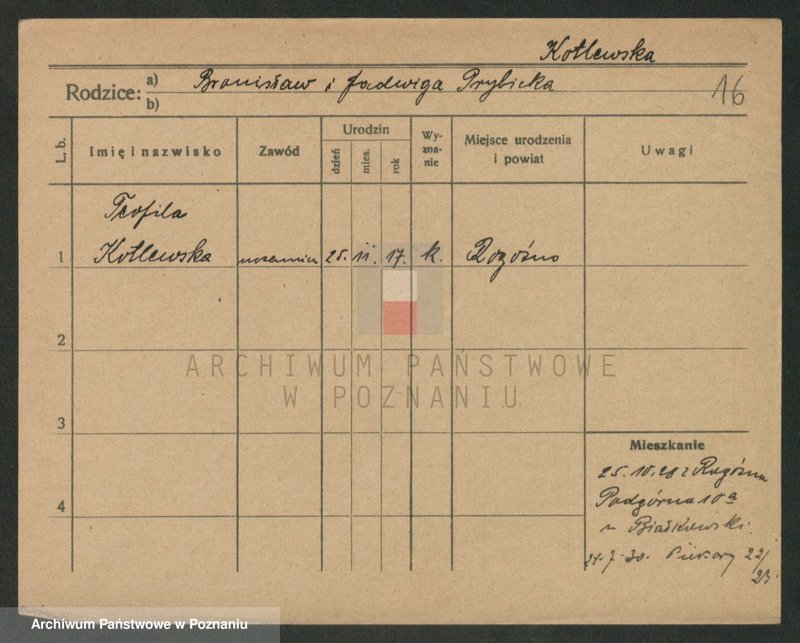 Kotlewska
Rodzice: a) Bronisław i Jadwiga Prybicka
b)
16
L. b. Imię i nazwisko Zawód Urodzin dzień mies. rok Wyznanie Miejsce urodzenia i powiat Uwagi
Teofila
1 Kotlewska 25. 11. 17. k. Rogoźno
2
ARCHIWUM PAŃSTWOWE
W POZNANIU
3
Mieszkanie
25.10.28 z Rogoźna
4 Podgórna 10a
u Białkowski.
24.7.30. Piekary 22/
23.
Archiwum Państwowe w Poznaniu